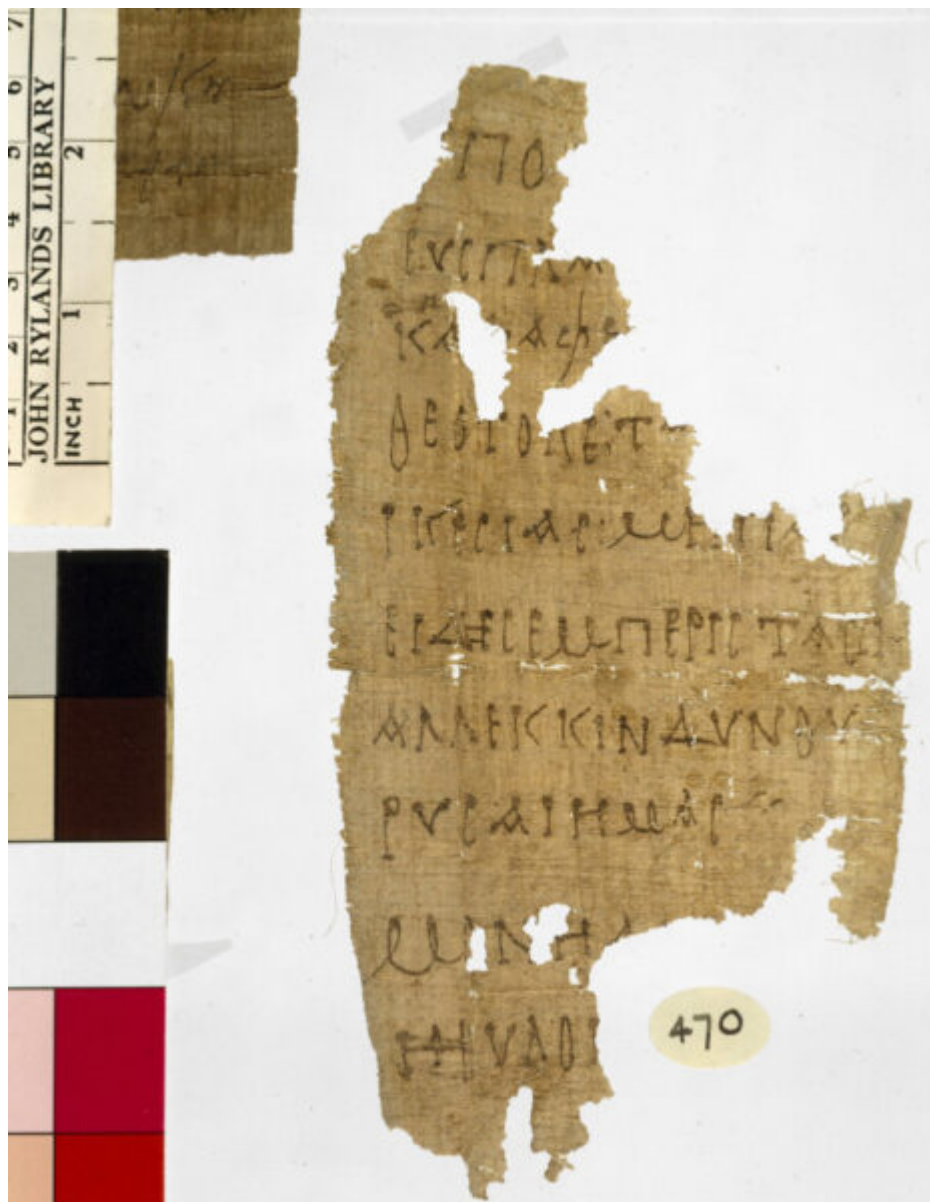 JOHN RYLANDS LIBRARY
INCH 1 2
1 2 3 4 5 6 7
ΠΟ
ΕΥCΠΛΑ
ΚΑΤΑΦΕ
ΘΕΟΤΟΚΕΤ
ΙΚΕCΙΑCΜΗΠΑ
ΕΙΔΗCΕΜΠΕΡΙCΤΑC
ΑΛΛΕΚΚΙΝΔΥΝΟΥ
ΡΥCΑΙΗΜΑC
ΜΟΝΗ
ΗΕΥΛΟΓ
470